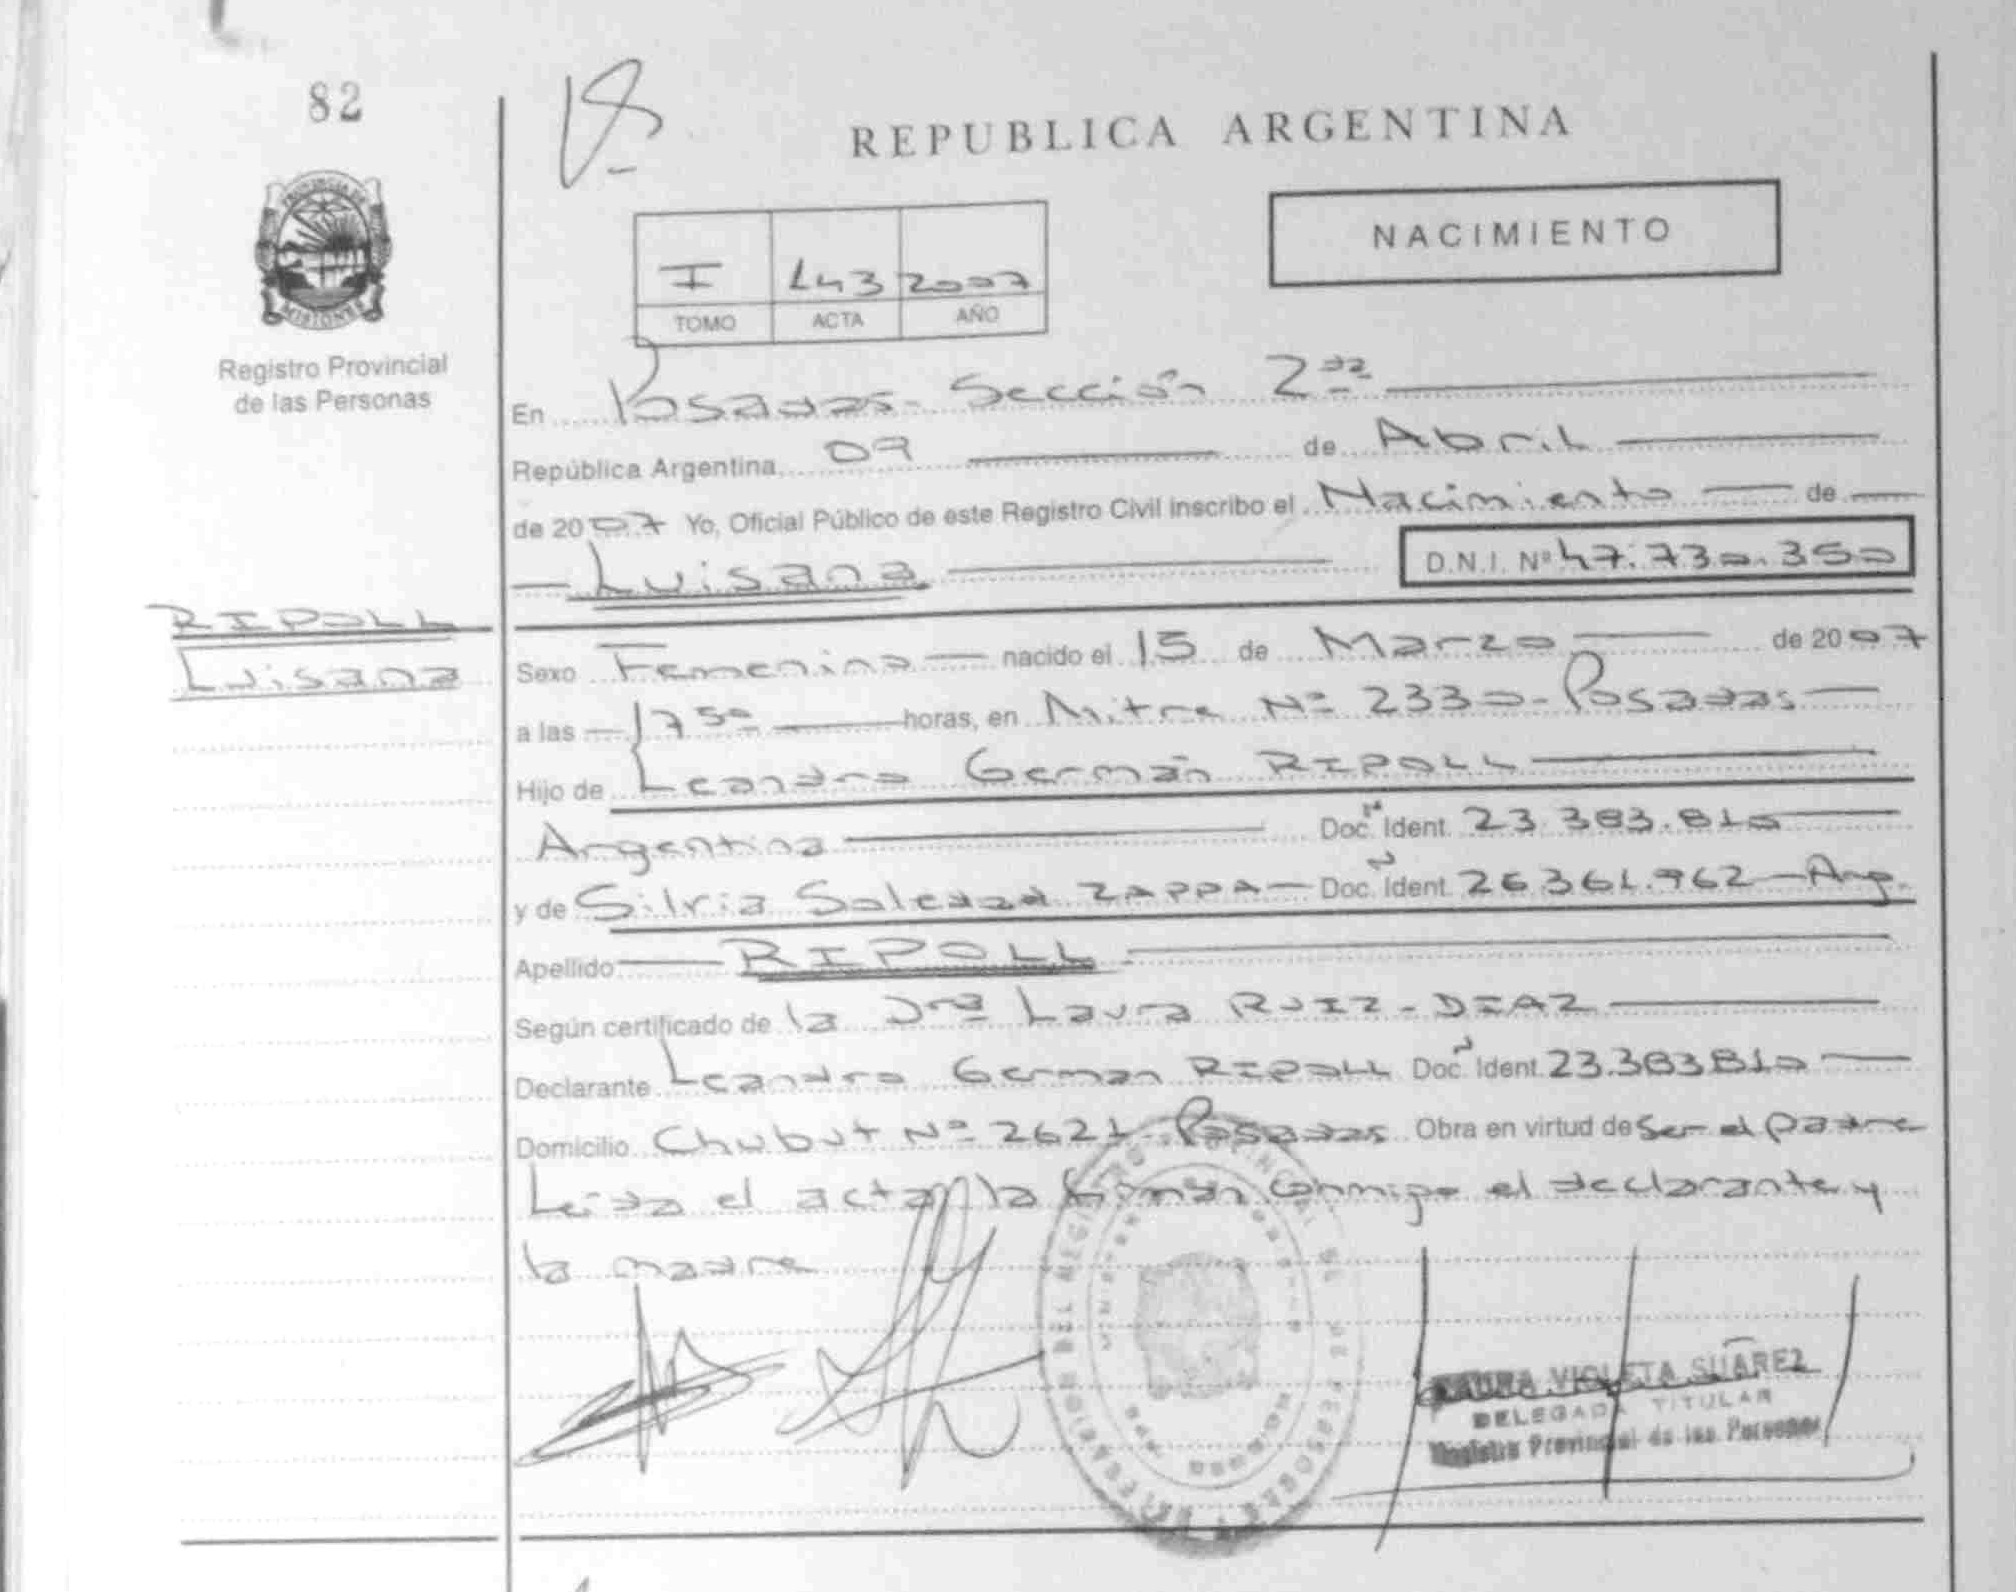 82
REPUBLICA ARGENTINA
PROVINCIA DE
MISIONES
NACIMIENTO
I 143 2007
TOMO ACTA AÑO
Registro Provincial
de las Personas
En Posadas - Sección 2da
República Argentina 09 de Abril
de 2007 Yo, Oficial Público de este Registro Civil inscribo el Nacimiento de
Luisana D.N.I. Nº 47.730.350
RIPOLL
Luisana
Sexo Femenino nacido el 15 de Marzo de 2007
a las 17 50 horas, en Mitre Nº 2330 - Posadas
Hijo de Leandro Germán RIPOLL
Argentina Doc. Ident. 23.383.810
y de Silvia Soledad ZAPPA Doc. Ident. 26.361.962 - Arg.
Apellido RIPOLL
Según certificado de la Dra Laura RUIZ - DIAZ
Declarante Leandro German RIPOLL Doc. Ident. 23.383.810
Domicilio Chubut Nº 2621 - Posadas Obra en virtud de ser el padre
Leida el acta, la firman conmigo el declarante y
la madre
LAURA VIOLETA SUAREZ
DELEGADA TITULAR
Registro Provincial de las Personas